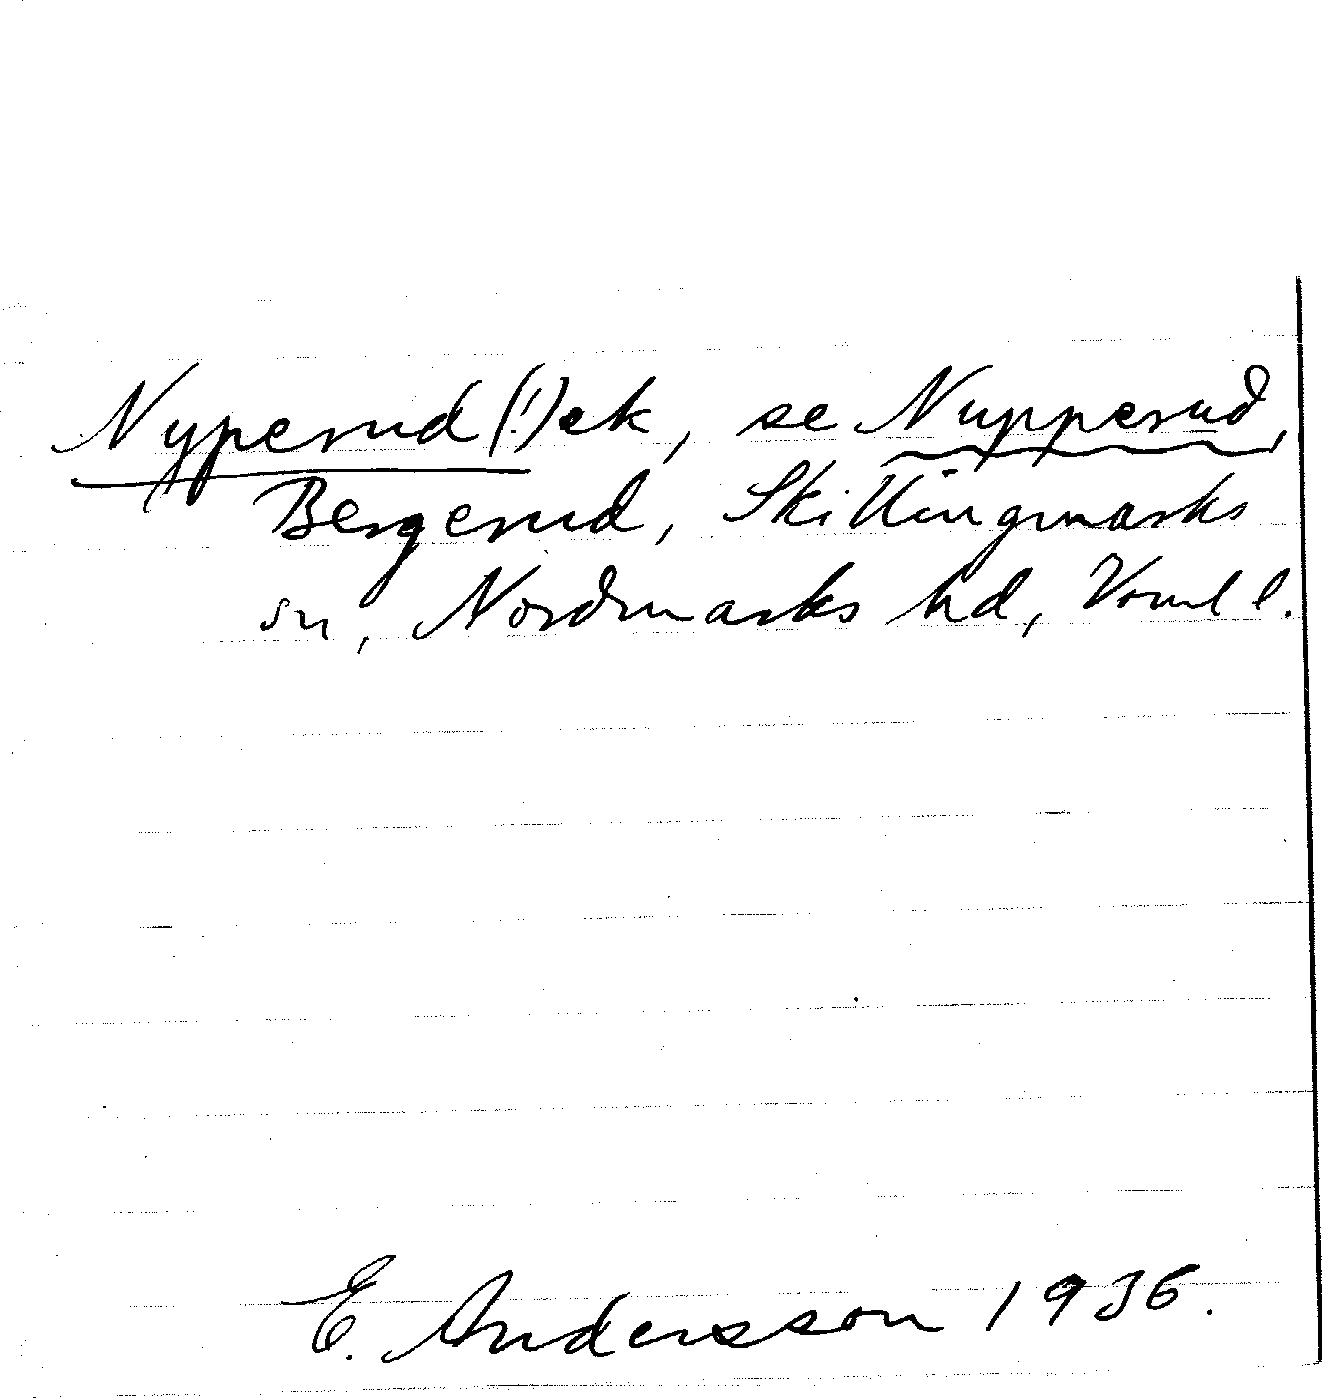 Nyperud (!) ek, se Nupperud,
Bergerud, Skillingmarks
sn, Nordmarks hd, Värml l.
E. Andersson 1936.